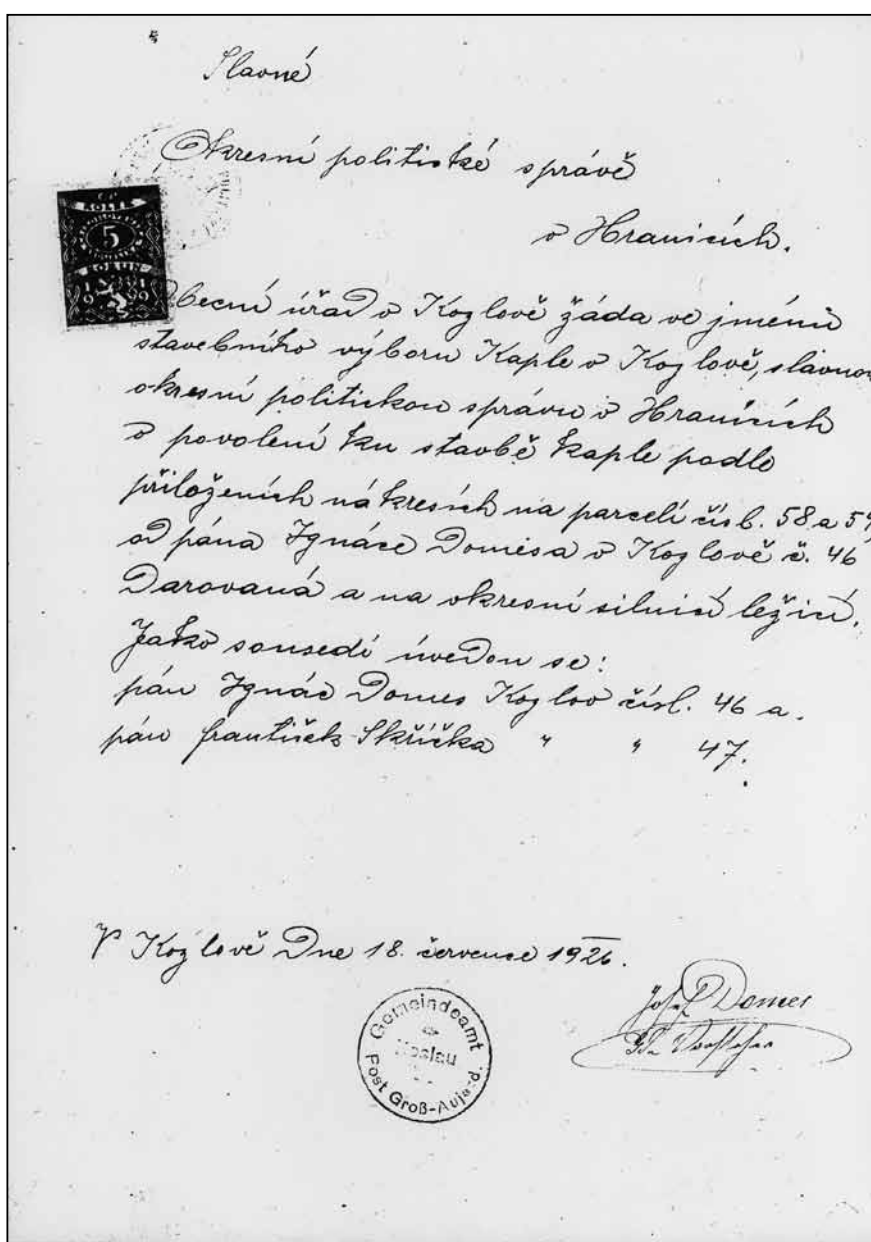 Slavné
Okresní politické správě
v Hranicích.
KOLEK
5
KORUN
1919
Obecní úřad v Kozlově žáda ve jménu
stavebního výboru Kaple v Kozlově, slavnou
okresní politickou správu v Hranicích
o povolení ku stavbě kaple podle
přiloženích nákresích na parcelí čísl. 58 a 59
od pána Ignáce Domesa v Kozlově č. 46
Darovaná a na okresní silnici ležící.
Jako sousedí uvedou se:
pán Ignác Domes Kozlov čísl. 46 a.
pán František Skřička " " 47.
V Kozlově Dne 18. července 1926.
Josef Domes
Vorsteher
Gemeindeamt
Koslau
Post Groß-Aujezd.